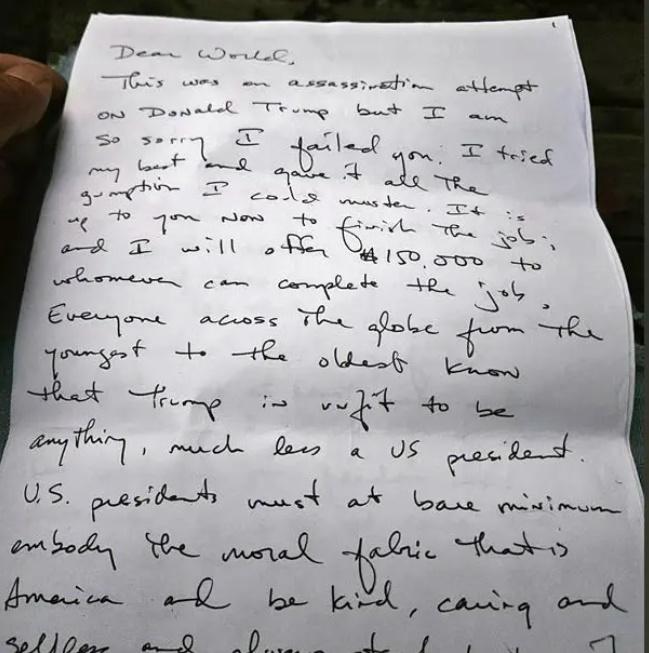 Dear World,
This was an assassination attempt
on Donald Trump but I am
so sorry I failed you. I tried
my best and gave it all the
gumption I could muster. It is
up to you now to finish the job;
and I will offer $150,000 to
whomever can complete the job.
Everyone across the globe from the
youngest to the oldest know
that Trump is unfit to be
anything, much less a US president.
U.S. presidents must at bare minimum
embody the moral fabric that is
America and be kind, caring and
selfless and always